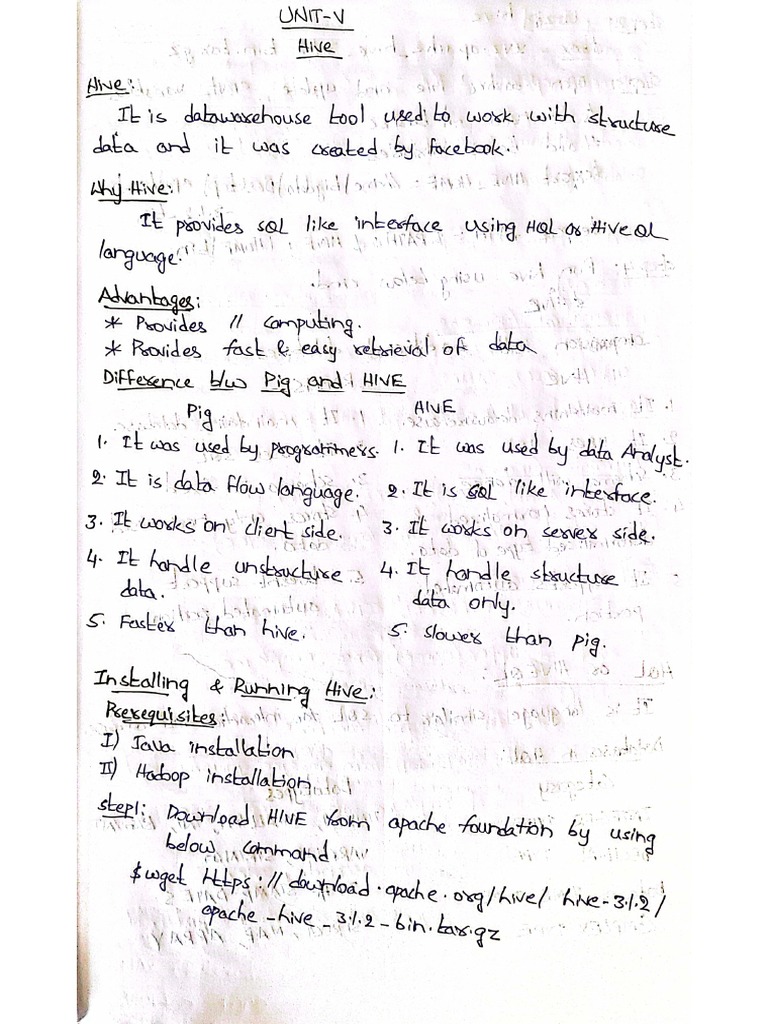 UNIT-V
Hive
Hive:
It is datawarehouse tool used to work with structure
data and it was created by facebook.
Why Hive:
It provides SQL like interface using HQL or HiveQL
language.
Advantages:
* Provides // computing.
* Provides fast & easy retrieval of data
Difference b/w Pig and HIVE
Pig HIVE
1. It was used by programmers. 1. It was used by data Analyst.
2. It is data flow language. 2. It is SQL like interface.
3. It works on client side. 3. It works on server side.
4. It handle unstructure 4. It handle structure
data. data only.
5. Faster than hive. 5. Slower than pig.
Installing & Running Hive:
Prerequisites:
I) Java installation
II) Hadoop installation
Step1: Download HIVE from apache foundation by using
below command.
$wget https://download.apache.org/hive/ hive-3.1.2/
apache-hive-3.1.2-bin.tar.gz